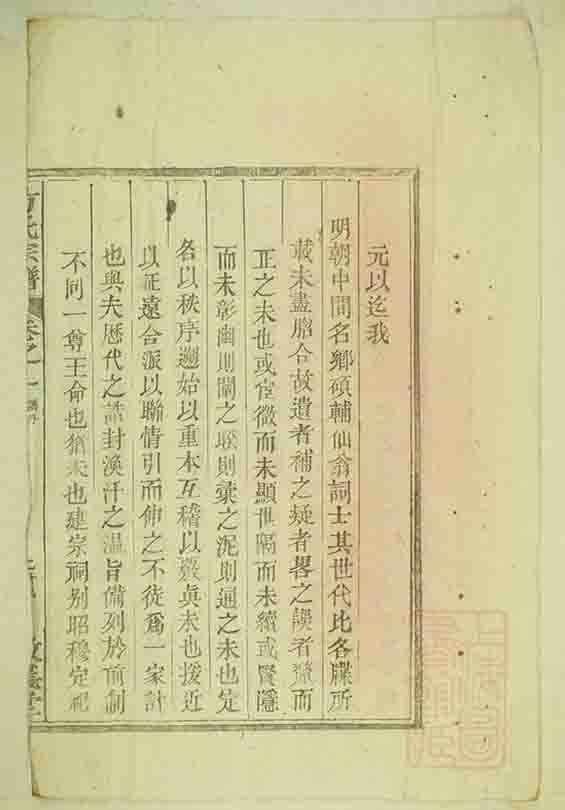 元以迄我
明朝中間名卿碩輔仙翁詞士其世代比各牒所
載未盡脗合故遺者補之疑者畧之誤者釐而
正之未也或宦微而未顯世隔而未續或賢隱
而未彰幽則闡之缺則彙之泥則通之未也定
各以秩序遡始以重本互稽以覈眞未也援近
以証遠合派以聯情引而伸之不徒爲一家計
也與夫歷代之誥封渙汗之温旨備列於前制
不同一尊王命也猶未也建宗祠别昭穆定祀
方氏宗譜
卷之一